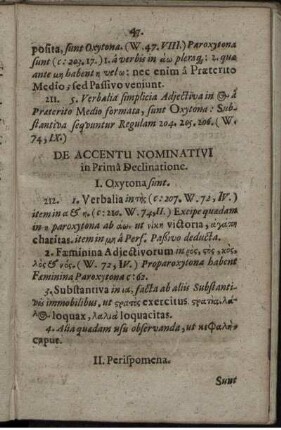 47.
posita, sunt Oxytona. (W. 47. VIII.) Paroxytona
sunt (c: 203. 17.) 1. à verbis in άω pleraq;: 2. quæ
ante μη habent η vel ω: nec enim á Præterito
Medio, sed Passivo veniunt.
211. 5. Verbalia simplicia Adjectiva in ☉ à
Præterito Medio formata, sunt Oxytona: Sub-
stantiva seqvuntur Regulam 204. 205. 206. (W.
74, IX.)
DE ACCENTU NOMINATIVI
in Primâ Declinatione.
I. Oxytona sunt.
212. 1. Verbalia in τὴς (c: 207. W. 72, IV.)
item in α & η. (c: 210. W. 74, II.) Excipe quædam
in η paroxytona ab αω. ut νίκη victoria, ἀγάπη
charitas. item in μη à Perf. Passivo deducta.
2. Fæminina Adjectivorum in
& (W. 72, IV.) Proparoxytona habent
Fæminina Paroxytona c: 62.
3. Substantiva in ια, facta ab aliis Substanti-
vis immobilibus, ut exercitus
loquax, λαλιὰ loquacitas.
4. Alia quædam usu observanda, ut κεφαλὴ
caput.
II. Perispomena.
Sunt